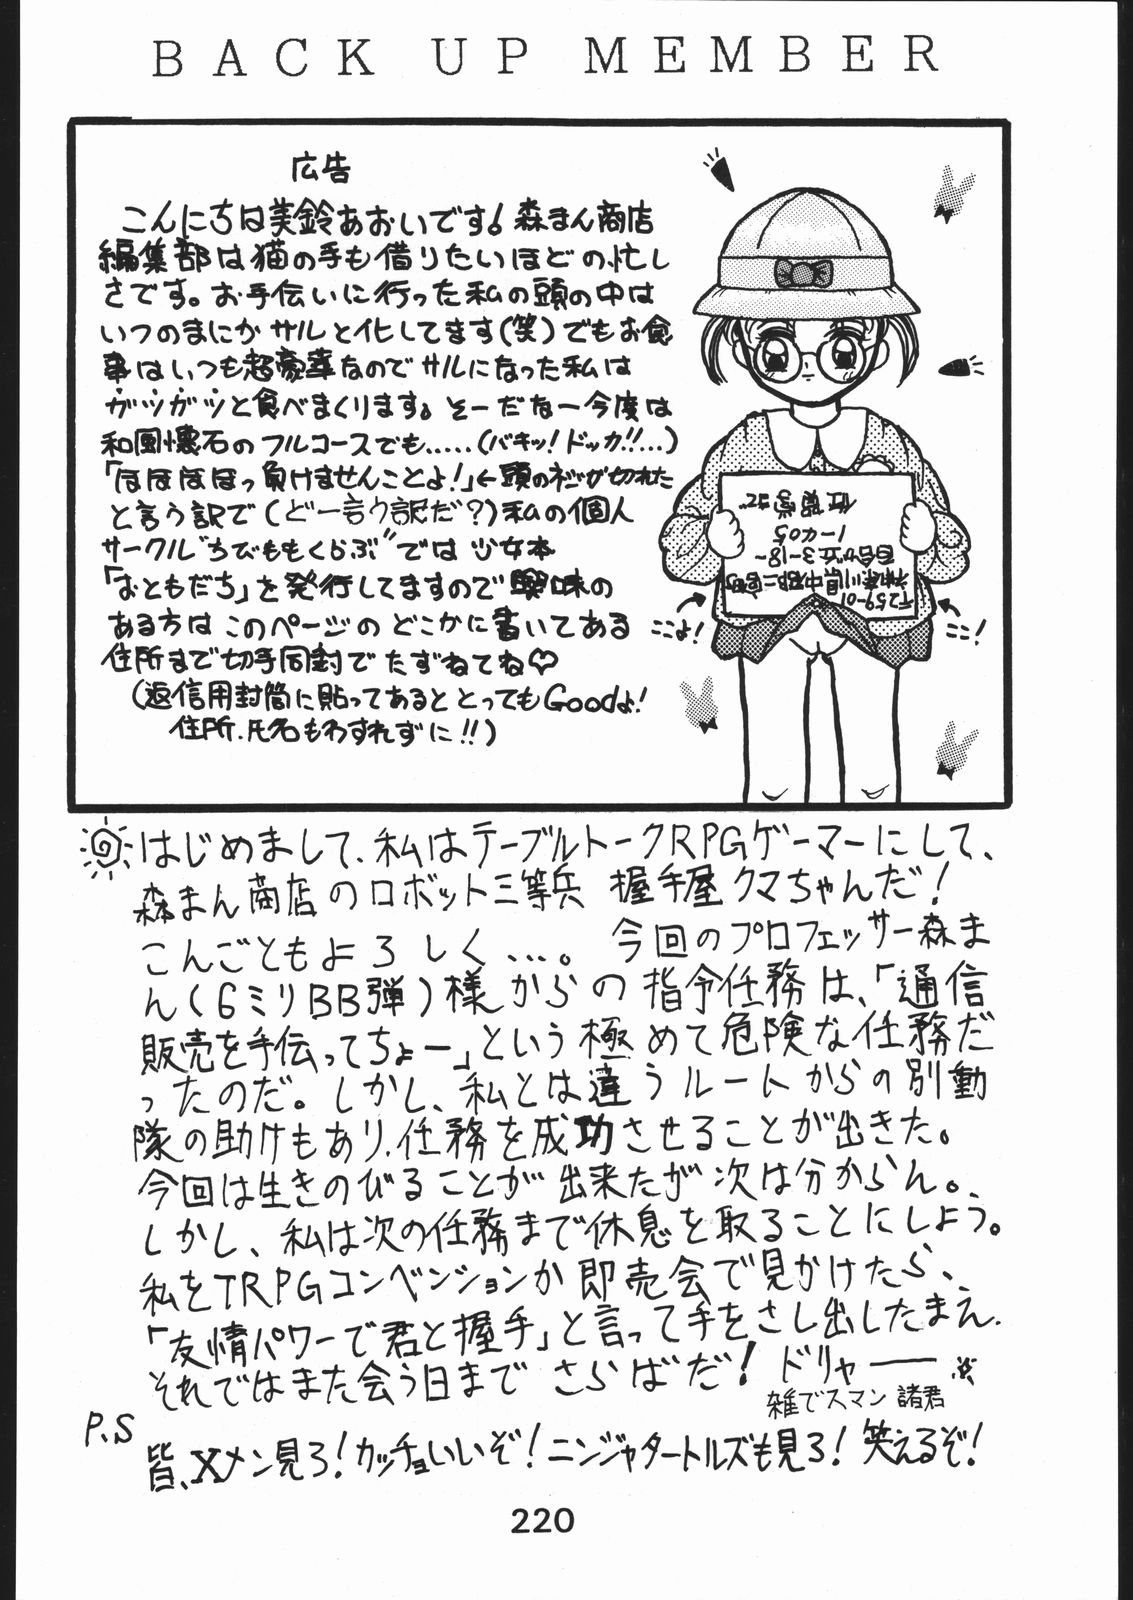 BACK UP MEMBER
広告
こんにちは美鈴あおいです! 森まん商店
編集部は猫の手も借りたいほどの忙し
さです。お手伝いに行った私の頭の中は
いつのまにかサルと化してます(笑)でもお食
事はいつも超豪華なのでサルになった私は
ガツガツと食べまくります。そーだなー今度は
和風懐石のフルコースでも……(バキッ!ドッカ!!…)
「ほほほほっ負けませんことよ!」←頭のネジが切れた
と言う訳で(どー言う訳だ?)私の個人
サークル"ちびももくらぶ"では少女本
「おともだち」を発行してますので興味の
ある方はこのページのどこかに書いてある
住所まで切手同封でたずねてね♡
(返信用封筒に貼ってあるととってもGoodよ!
住所.氏名もわすれずに!!)
ここよ!
ここ!
〒259-01
神奈川県中郡二宮町
百合が丘3-18-
1-405
はじめまして、私はテーブルトークRPGゲーマーにして、
森まん商店のロボット三等兵 握手屋クマちゃんだ!
こんごともよろしく…。 今回のプロフェッサー森ま
ん(6ミリBB弾)様からの指令任務は、「通信
販売を手伝ってちょー」という極めて危険な任務だ
ったのだ。しかし、私とは違うルートからの別動
隊の助けもあり、任務を成功させることが出きた。
今回は生きのびることが出来たが次は分からん。
しかし、私は次の任務まで休息を取ることにしよう。
私をTRPGコンベンションか即売会で見かけたら、
「友情パワーで君と握手」と言って手をさし出したまえ.
それではまた会う日まで さらばだ! ドリャー
雑でスマン 諸君
P.S
皆、Xメン見ろ!カッチョいいぞ!ニンジャタートルズも見ろ!笑えるぞ!
220